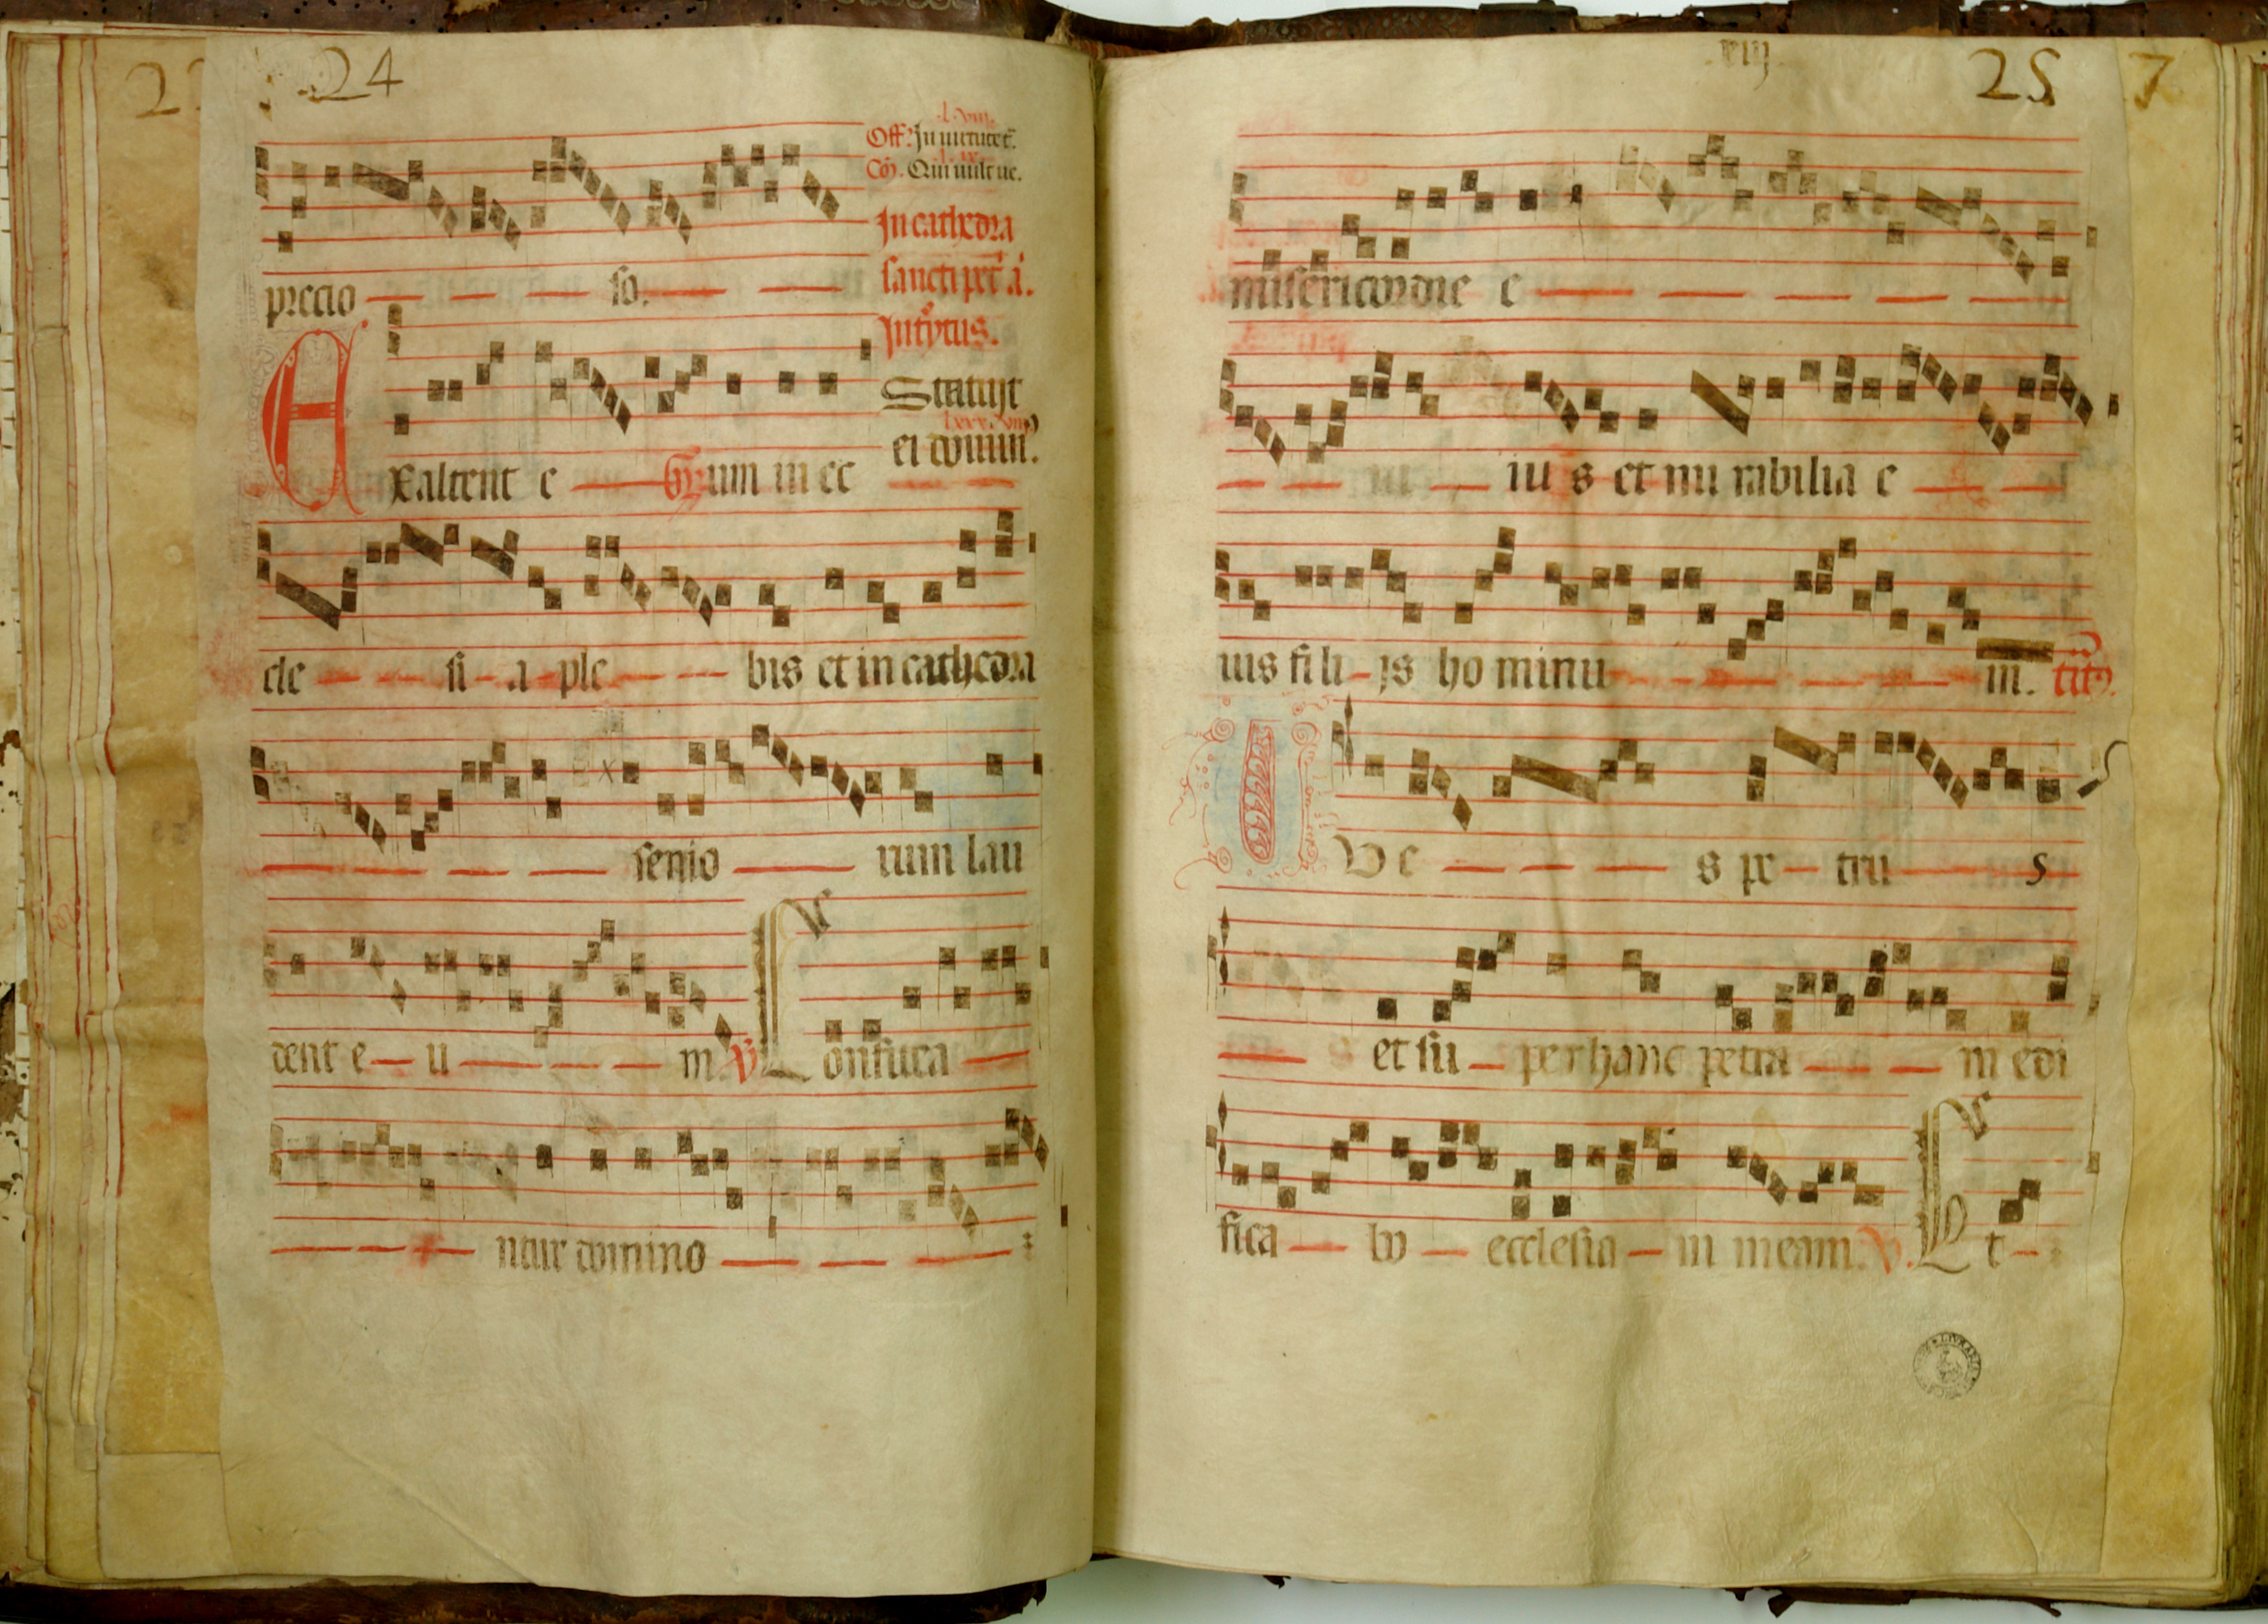 24
Off. In uirtute t.
Cō. Qui uult ue.
In cathedra
precio so.
sancti pet ̄ a.
Introytus.
Statuit
ei domin.
Exaltent e Gr. um in ec
cle si a ple bis et in cathedra
senio rum lau
dent e u m. V. Confitea
ntur domino
viij
25
7
misericordie e
ius et mi rabilia e
ius fili js ho minu m. tct9.
Tu e s pe tru s
et su per hanc petra m edi
fica bo ecclesia m meam. V. Et